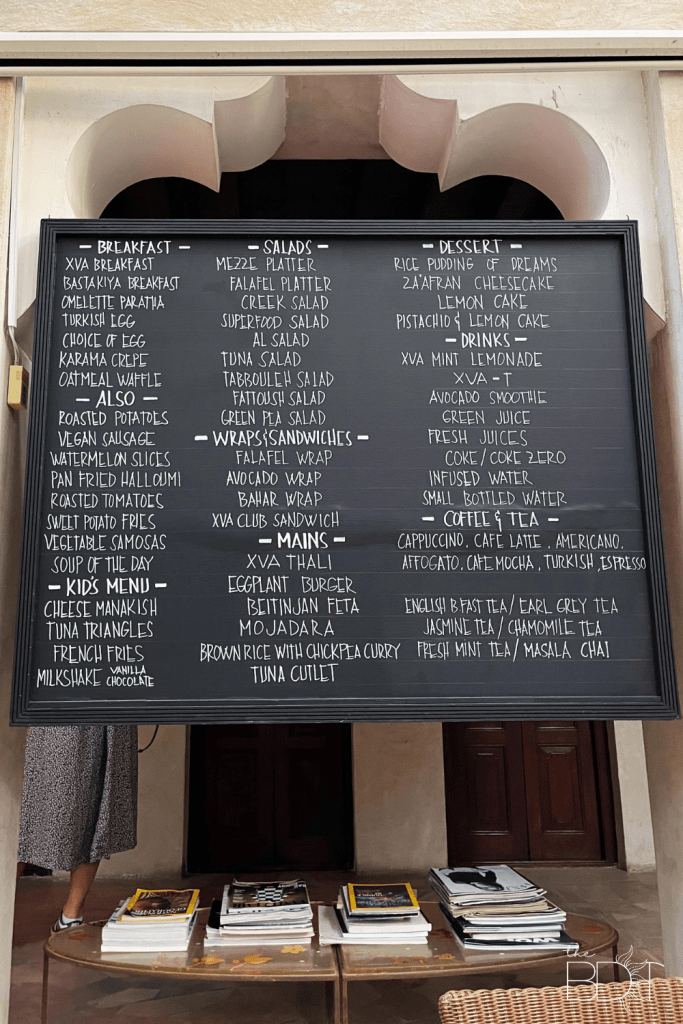 - BREAKFAST -
XVA BREAKFAST
BASTAKIYA BREAKFAST
OMELETTE PARATHA
TURKISH EGG
CHOICE OF EGG
KARAMA CREPE
OATMEAL WAFFLE
- ALSO -
ROASTED POTATOES
VEGAN SAUSAGE
WATERMELON SLICES
PAN FRIED HALLOUMI
ROASTED TOMATOES
SWEET POTATO FRIES
VEGETABLE SAMOSAS
SOUP OF THE DAY
- KID'S MENU -
CHEESE MANAKISH
TUNA TRIANGLES
FRENCH FRIES
MILKSHAKE VANILLA
CHOCOLATE
- SALADS -
MEZZE PLATTER
FALAFEL PLATTER
CREEK SALAD
SUPERFOOD SALAD
AL SALAD
TUNA SALAD
TABBOULEH SALAD
FATTOUSH SALAD
GREEN PEA SALAD
- WRAPS & SANDWICHES -
FALAFEL WRAP
AVOCADO WRAP
BAHAR WRAP
XVA CLUB SANDWICH
- MAINS -
XVA THALI
EGGPLANT BURGER
BEITINJAN FETA
MOJADARA
BROWN RICE WITH CHICKPEA CURRY
TUNA CUTLET
- DESSERT -
RICE PUDDING OF DREAMS
ZA'AFRAN CHEESECAKE
LEMON CAKE
PISTACHIO & LEMON CAKE
- DRINKS -
XVA MINT LEMONADE
XVA - T
AVOCADO SMOOTHIE
GREEN JUICE
FRESH JUICES
COKE/COKE ZERO
INFUSED WATER
SMALL BOTTLED WATER
- COFFEE & TEA -
CAPPUCCINO, CAFE LATTE, AMERICANO,
AFFOGATO, CAFE MOCHA, TURKISH, ESPRESSO
ENGLISH B FAST TEA/ EARL GREY TEA
JASMINE TEA/ CHAMOMILE TEA
FRESH MINT TEA/ MASALA CHAI
the
BDT